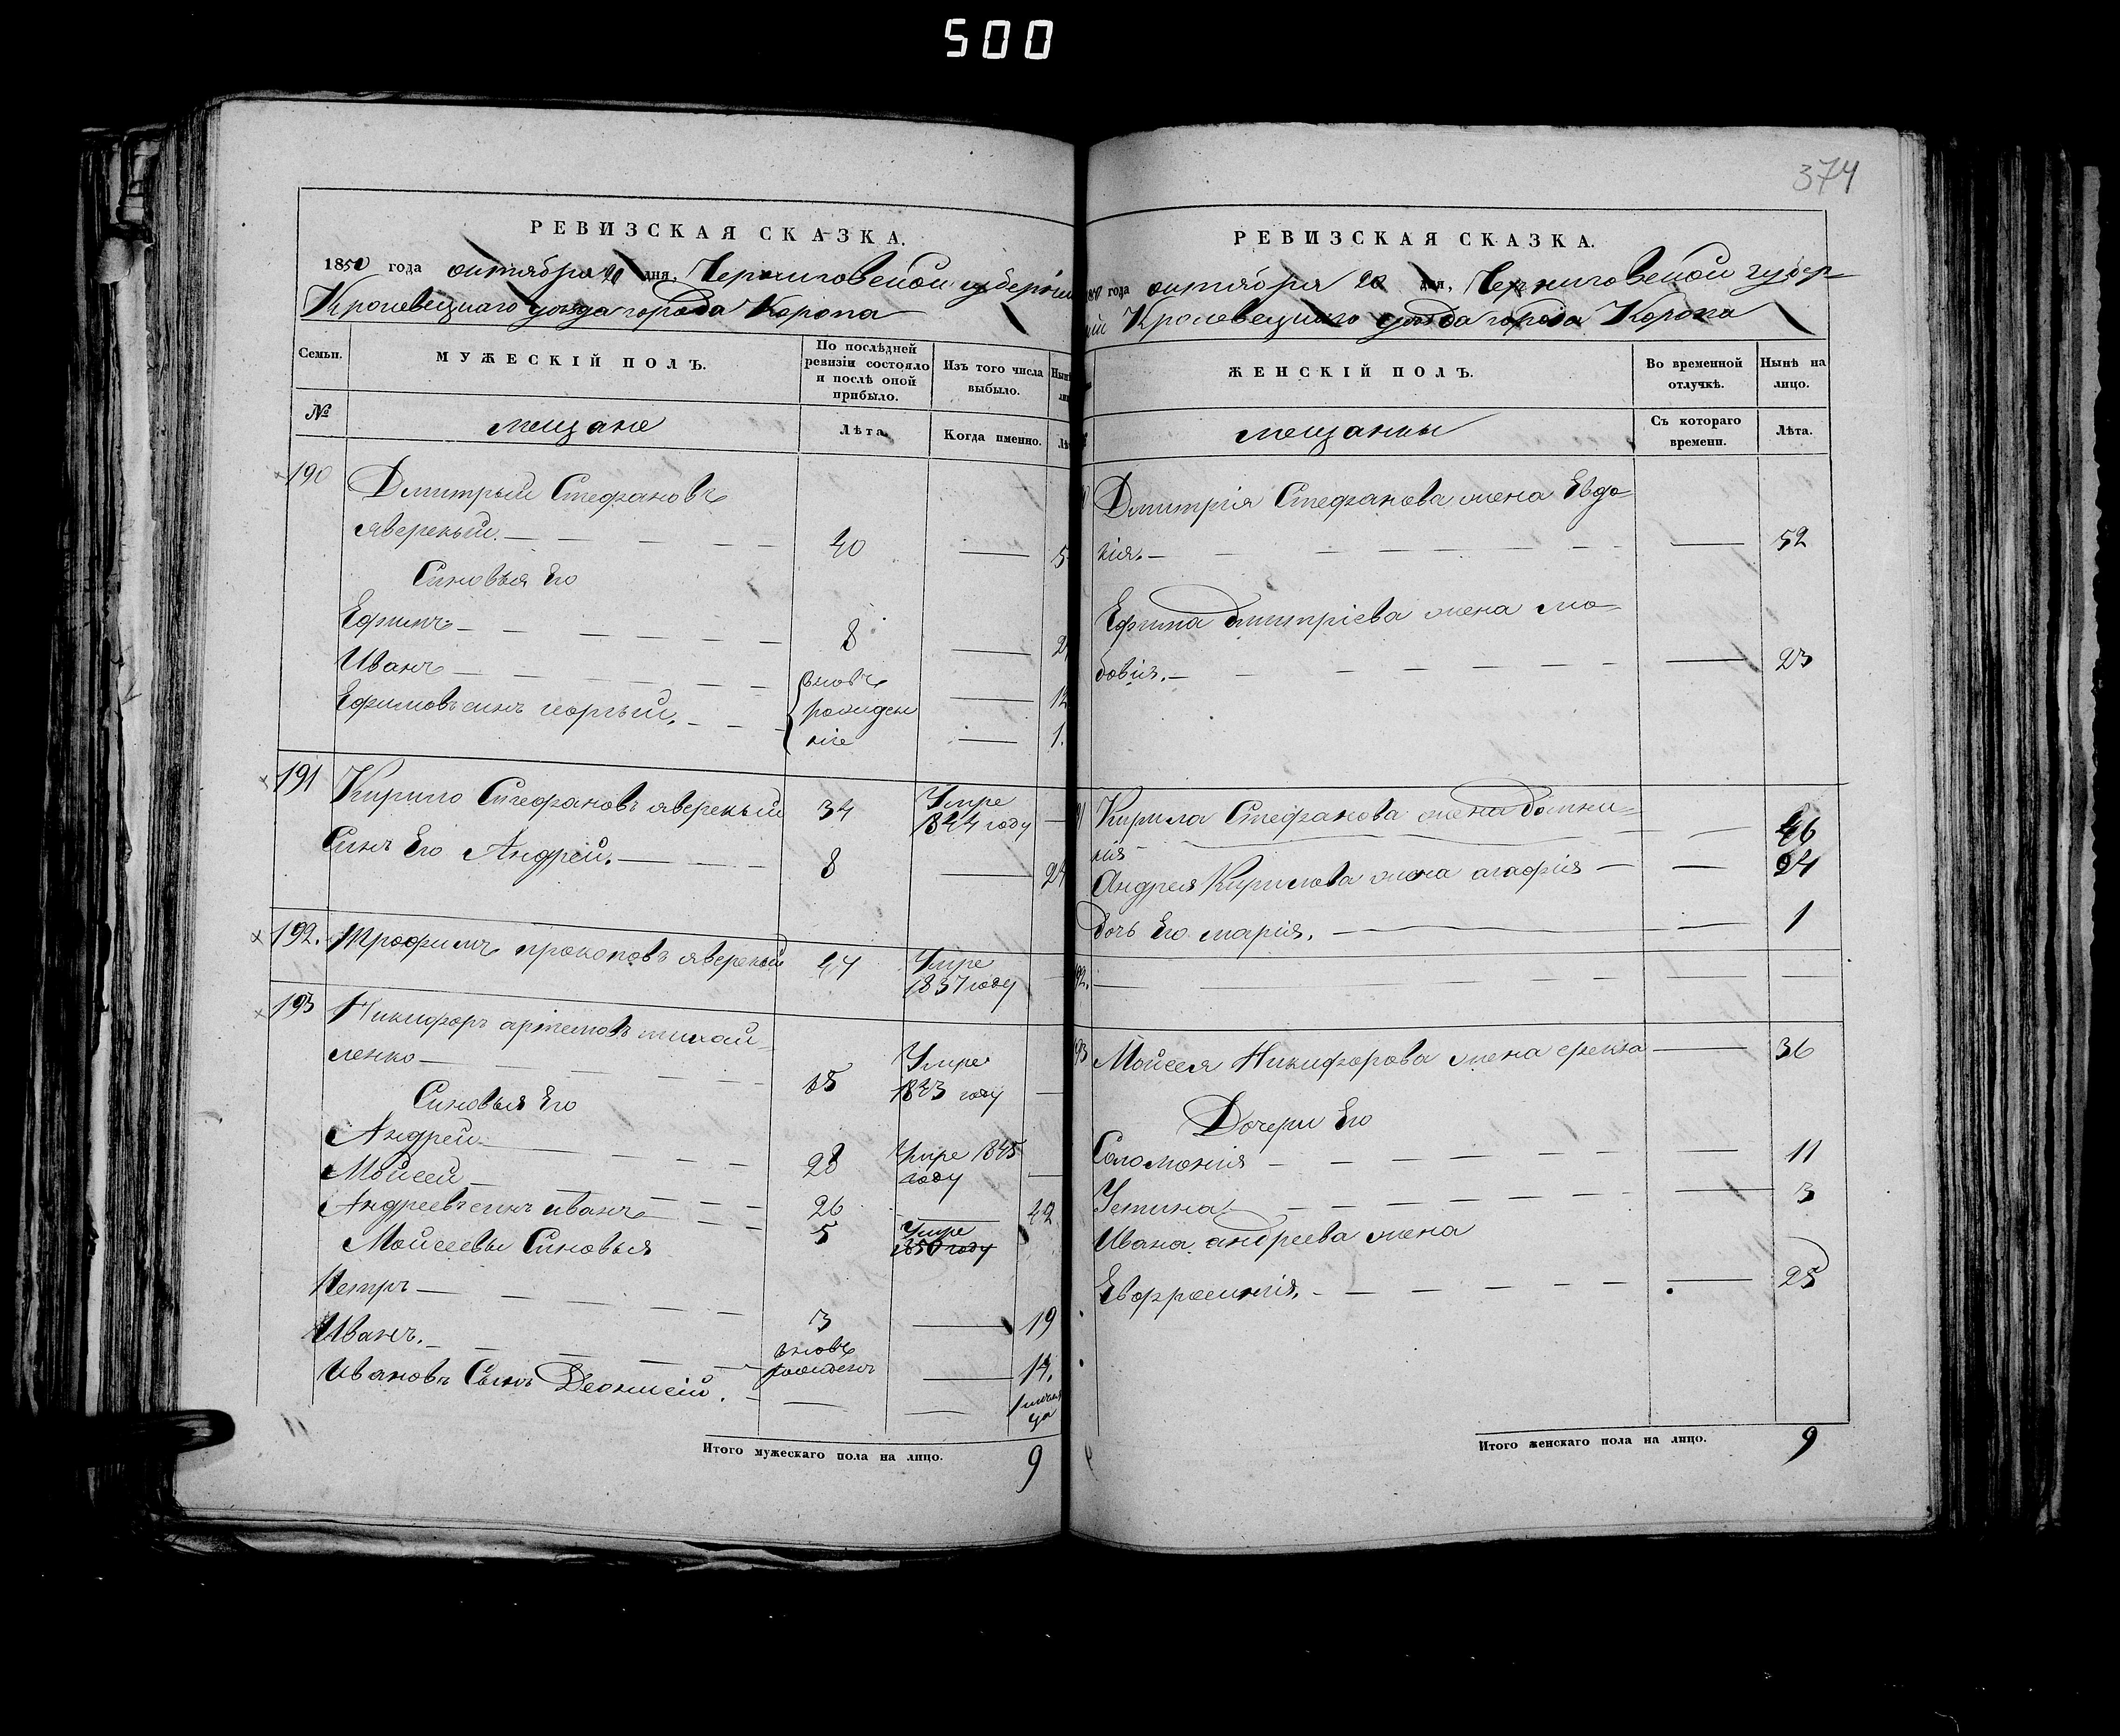 500
374
РЕВИЗСКАЯ СКАЗКА.
1850 года октября 20 дня, Черниговской губерніи
Кролевецкаго уезда города Коропа
Семьи.
МУЖЕСКІЙ ПОЛЪ.
По послѣдней ревизіи состояло и послѣ оной прибыло.
Изъ того числа выбыло.
№
мещане
Лѣта.
Когда именно.
190
Дмитрый Стефановъ
яверскый. — 40 —
Синовья Его
Ефимъ — 8 —
Иванъ — вновь —
Ефимовъ синъ георгый. — рожден
ніе — 1.
191 Кирило Стефановъ яверскый 34 Умре 1844 году —
Синъ Его Андрей. — 8 — 24
192. Трофимъ прокоповъ яверскый 44 Умре 1837 году
193 Никифоръ артемовъ михай
ленко — 65 Умре 1843 году —
Синовья Его
Андрей — 28 Умре 1845 году —
Мойсей — 26 — 42
Андреевъ синъ иванъ — 5 Умре 1850 году
Мойсеевы Синовья
Петръ — 3 — 19
Иванъ. — вновь рожденъ — 14.
Ивановъ Сынъ Деонисій. — — — 1 месяца
Итого мужескаго пола на лицо. 9
РЕВИЗСКАЯ СКАЗКА.
года октября 20 дня, Черниговской губер
ніи Кролевецкаго уезда города Коропа
ЖЕНСКІЙ ПОЛЪ.
Во временной отлучкѣ.
Нынѣ на лицо.
мещанки
Съ котораго времени.
Лѣта.
Дмитрія Стефанова жена Евдо
кія. — — 52
Ефима дмитріева жена лю
бовія. — — 23
Кирила Стефанова жена домни
кія — — 46
Андрея Кирилова жена агафія — — 24
дочь Его марія. — — 1
92. — — —
93 Мойсея Никифорова жена фекла — 36
Дочери Его
Соломонія — — 11
Устина — — 3
Ивана андреева жена
Евфросинія. — — 25
Итого женскаго пола на лицо. 9